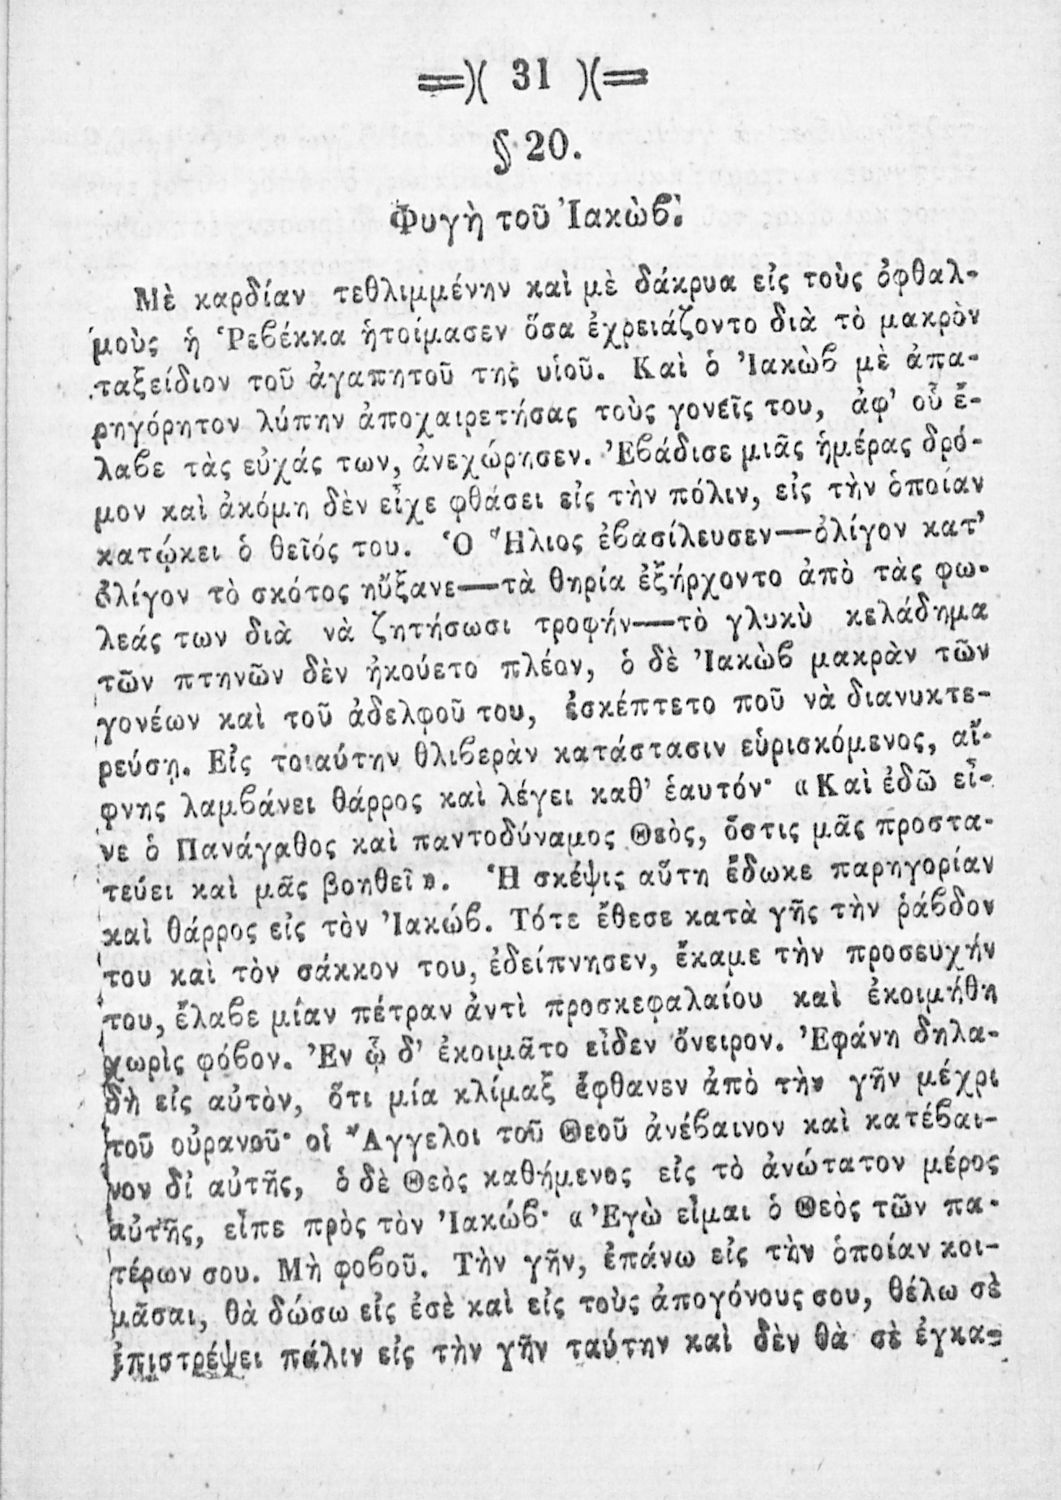 =)( 31 )(=
§. 20.
Φυγὴ τοῦ Ἰακὼϐ.
Μὲ καρδίαν τεθλιμμένην καὶ μὲ δάκρυα εἰς τοὺς ὀφθαλ-
μοὺς ἡ Ῥεϐέκκα ἡτοίμασεν ὅσα ἐχρειάζοντο διὰ τὸ μακρὸν
ταξείδιον τοῦ ἀγαπητοῦ της υἱοῦ. Καὶ ὁ Ἰακὼϐ μὲ ἀπα-
ρηγόρητον λύπην ἀποχαιρετήσας τοὺς γονεῖς του, ἀφ’ οὗ ἔ-
λαϐε τὰς εὐχάς των, ἀνεχώρησεν. Ἐϐάδισε μιᾶς ἡμέρας δρό-
μον καὶ ἀκόμη δὲν εἶχε φθάσει εἰς τὴν πόλιν, εἰς τὴν ὁποίαν
κατῴκει ὁ θεῖός του. Ὁ Ἥλιος ἐϐασίλευσεν—ὀλίγον κατ’
ὀλίγον τὸ σκότος ηὔξανε—τὰ θηρία ἐξήρχοντο ἀπὸ τὰς φω-
λεάς των διὰ νὰ ζητήσωσι τροφήν—τὸ γλυκὺ κελάδημα
τῶν πτηνῶν δὲν ἠκούετο πλέον, ὁ δὲ Ἰακὼϐ μακρὰν τῶν
γονέων καὶ τοῦ ἀδελφοῦ του, ἐσκέπτετο ποῦ νὰ διανυκτε-
ρεύσῃ. Εἰς τοιαύτην θλιϐερὰν κατάστασιν εὑρισκόμενος, αἴ-
φνης λαμϐάνει θάρρος καὶ λέγει καθ’ ἑαυτόν· «Καὶ ἐδῶ εἶ-
νε ὁ Πανάγαθος καὶ παντοδύναμος Θεὸς, ὅστις μᾶς προστα-
τεύει καὶ μᾶς βοηθεῖ». Ἡ σκέψις αὕτη ἔδωκε παρηγορίαν
καὶ θάρρος εἰς τὸν Ἰακώϐ. Τότε ἔθεσε κατὰ γῆς τὴν ῥάϐδον
του καὶ τὸν σάκκον του, ἐδείπνησεν, ἔκαμε τὴν προσευχήν
του, ἔλαϐε μίαν πέτραν ἀντὶ προσκεφαλαίου καὶ ἐκοιμήθη
χωρὶς φόϐον. Ἐν ᾧ δ’ ἐκοιμᾶτο εἶδεν ὄνειρον. Ἐφάνη δηλα-
δὴ εἰς αὐτὸν, ὅτι μία κλίμαξ ἔφθανεν ἀπὸ τὴν γῆν μέχρι
τοῦ οὐρανοῦ· οἱ Ἄγγελοι τοῦ Θεοῦ ἀνέϐαινον καὶ κατέϐαι-
νον δι’ αὐτῆς, ὁ δὲ Θεὸς καθήμενος εἰς τὸ ἀνώτατον μέρος
αὐτῆς, εἶπε πρὸς τὸν Ἰακώϐ· «Ἐγὼ εἶμαι ὁ Θεὸς τῶν πα-
τέρων σου. Μὴ φοϐοῦ. Τὴν γῆν, ἐπάνω εἰς τὴν ὁποίαν κοι-
μᾶσαι, θὰ δώσω εἰς ἐσὲ καὶ εἰς τοὺς ἀπογόνους σου, θέλω σὲ
ἐπιστρέψει πάλιν εἰς τὴν γῆν ταύτην καὶ δὲν θὰ σὲ ἐγκα-